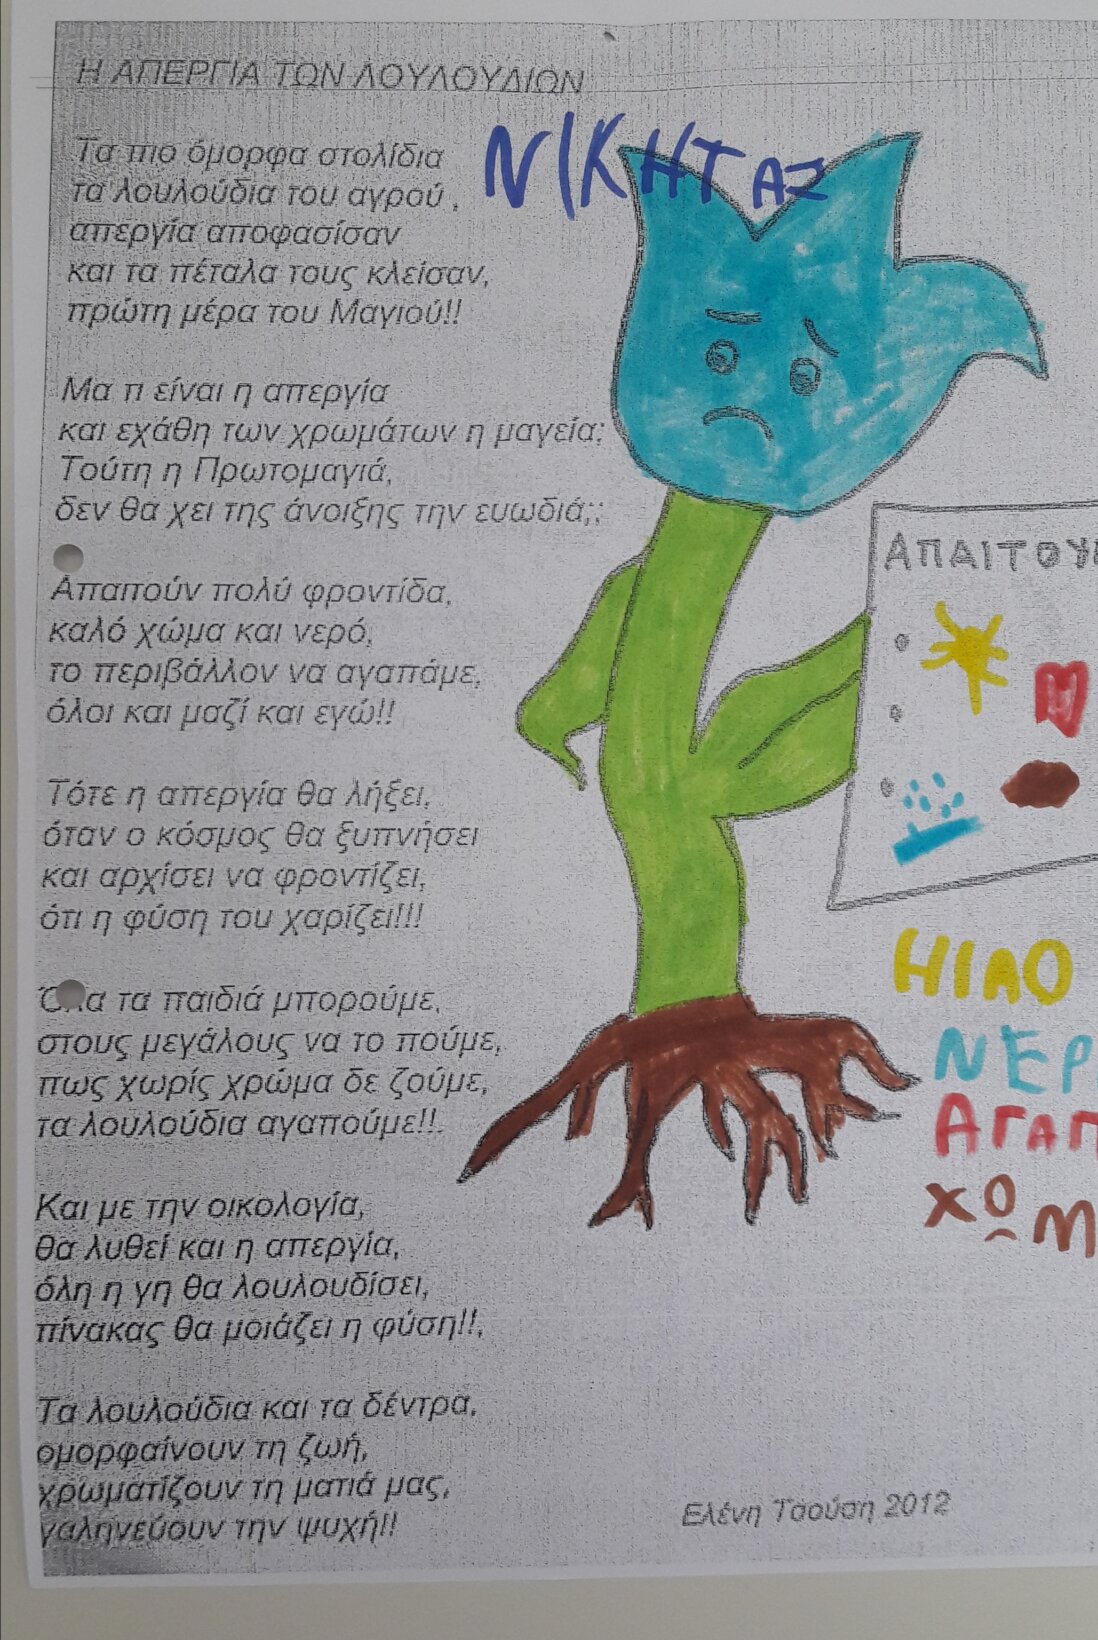 Η ΑΠΕΡΓΙΑ ΤΩΝ ΛΟΥΛΟΥΔΙΩΝ
ΝΙΚΗΤΑΣ
Τα πιο όμορφα στολίδια
τα λουλούδια του αγρού ,
απεργία αποφασίσαν
και τα πέταλα τους κλείσαν,
πρώτη μέρα του Μαγιού!!
Μα τι είναι η απεργία
και εχάθη των χρωμάτων η μαγεία;
Τούτη η Πρωτομαγιά,
δεν θα χει της άνοιξης την ευωδιά;;
Απαιτούν πολύ φροντίδα,
καλό χώμα και νερό,
το περιβάλλον να αγαπάμε,
όλοι και μαζί και εγώ!!
Τότε η απεργία θα λήξει,
όταν ο κόσμος θα ξυπνήσει
και αρχίσει να φροντίζει,
ότι η φύση του χαρίζει!!!
Όλα τα παιδιά μπορούμε,
στους μεγάλους να το πούμε,
πως χωρίς χρώμα δε ζούμε,
τα λουλούδια αγαπούμε!!.
Και με την οικολογία,
θα λυθεί και η απεργία,
όλη η γη θα λουλουδίσει,
πίνακας θα μοιάζει η φύση!!,
Τα λουλούδια και τα δέντρα,
ομορφαίνουν τη ζωή,
χρωματίζουν τη ματιά μας,
γαληνεύουν την ψυχή!!
Ελένη Τσούση 2012
ΑΠΑΙΤΟΥ
ΗΙΛΟ
ΝΕΡ
ΑΓΑΠ
ΧΩΜ